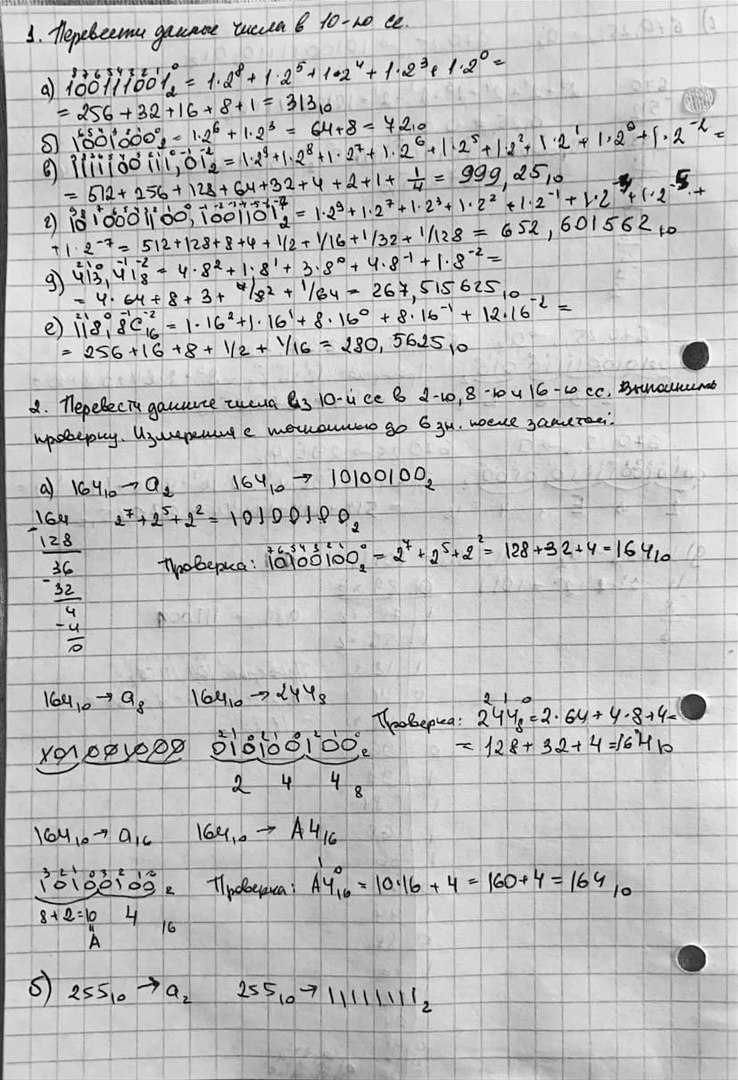 1. Перевести данные числа в 10-ю сс.
а) 100111001₂ = 1·2⁸ + 1·2⁵ + 1·2⁴ + 1·2³ + 1·2⁰ =
= 256 + 32 + 16 + 8 + 1 = 313₁₀
б) 1001000₂ = 1·2⁶ + 1·2³ = 64 + 8 = 72₁₀
в) 1111100111,01₂ = 1·2⁹ + 1·2⁸ + 1·2⁷ + 1·2⁶ + 1·2⁵ + 1·2² + 1·2¹ + 1·2⁰ + 1·2⁻² =
= 512 + 256 + 128 + 64 + 32 + 4 + 2 + 1 + 1/4 = 999,25₁₀
г) 1010001100,1001101₂ = 1·2⁹ + 1·2⁷ + 1·2³ + 1·2² + 1·2⁻¹ + 1·2⁻⁴ + 1·2⁻⁵ +
+ 1·2⁻⁷ = 512 + 128 + 8 + 4 + 1/2 + 1/16 + 1/32 + 1/128 = 652,601562₁₀
д) 413,41₈ = 4·8² + 1·8¹ + 3·8⁰ + 4·8⁻¹ + 1·8⁻² =
= 4·64 + 8 + 3 + 4/8 + 1/64 = 267,515625₁₀
е) 118,8C₁₆ = 1·16² + 1·16¹ + 8·16⁰ + 8·16⁻¹ + 12·16⁻² =
= 256 + 16 + 8 + 1/2 + 1/16 = 280,5625₁₀
2. Перевести данные числа из 10-й сс в 2-ю, 8-ю и 16-ю сс. Выполнить
проверку. Измерения с точностью до 6 зн. после запятой:
а) 164₁₀ → a₂ 164₁₀ → 10100100₂
164 2⁷ + 2⁵ + 2² = 10100100₂
- 128
36 Проверка: 10100100₂ = 2⁷ + 2⁵ + 2² = 128 + 32 + 4 = 164₁₀
- 32
4
- 4
0
164₁₀ → a₈ 164₁₀ → 244₈
Проверка: 244₈ = 2·64 + 4·8 + 4 =
= 128 + 32 + 4 = 164₁₀
010100100₂
2 4 4 ₈
164₁₀ → a₁₆ 164₁₀ → A4₁₆
10100100₂ Проверка: A4₁₆ = 10·16 + 4 = 160 + 4 = 164₁₀
8+2=10 4 ₁₆
"
A
б) 255₁₀ → a₂ 255₁₀ → 11111111₂